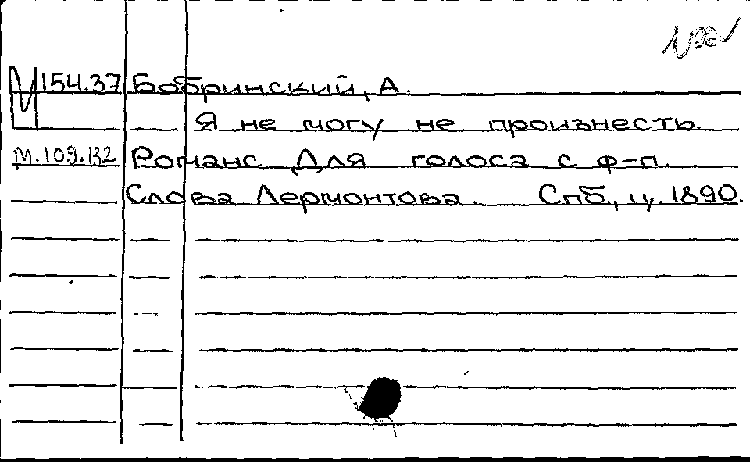 М 154.37 Бобринский, А.
Я не могу не произнесть.
М.109.132 Романс. Для голоса с ф-п.
Слова Лермонтова. Спб, ц. 1890.